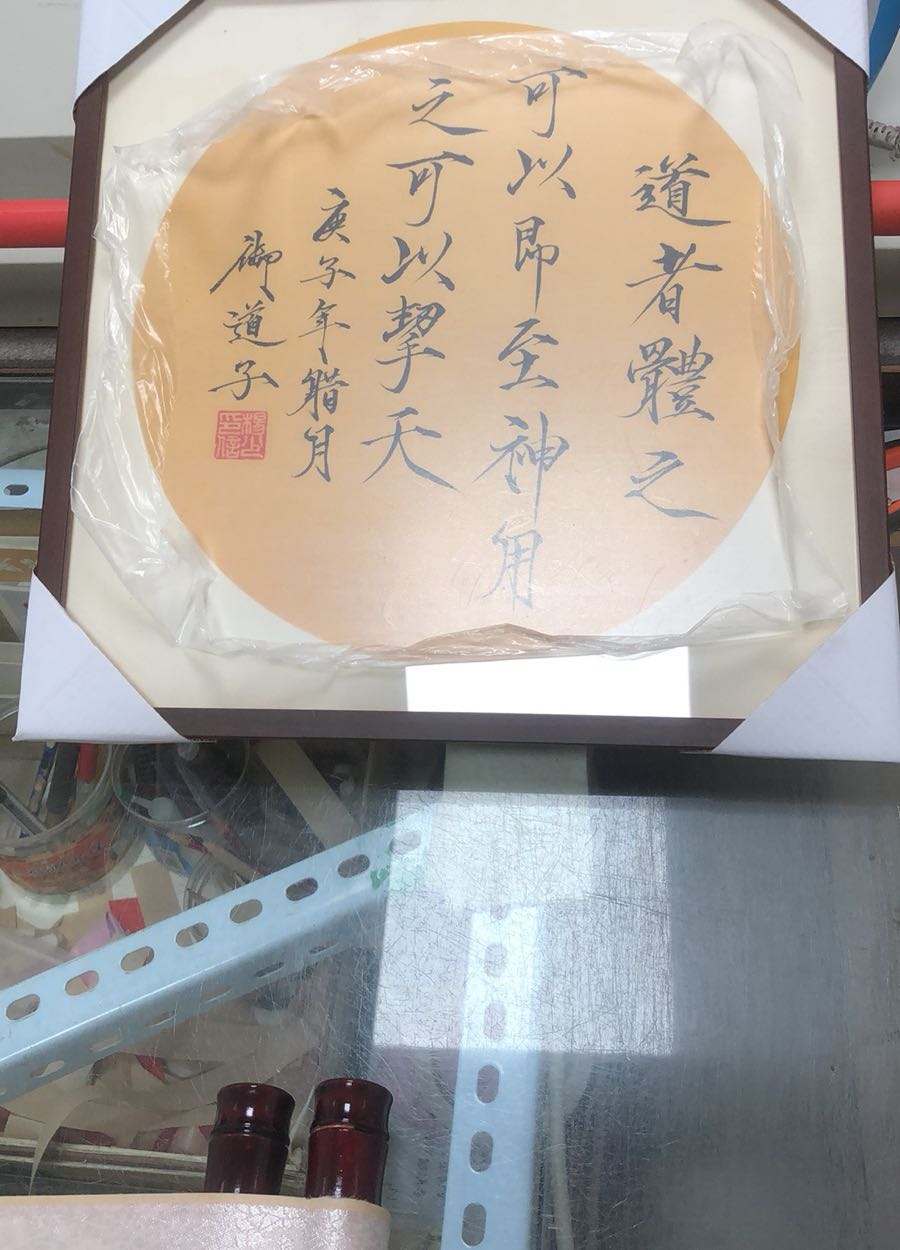 道者體之
可以即至神用
之可以挈天
庚子年腊月
御道子